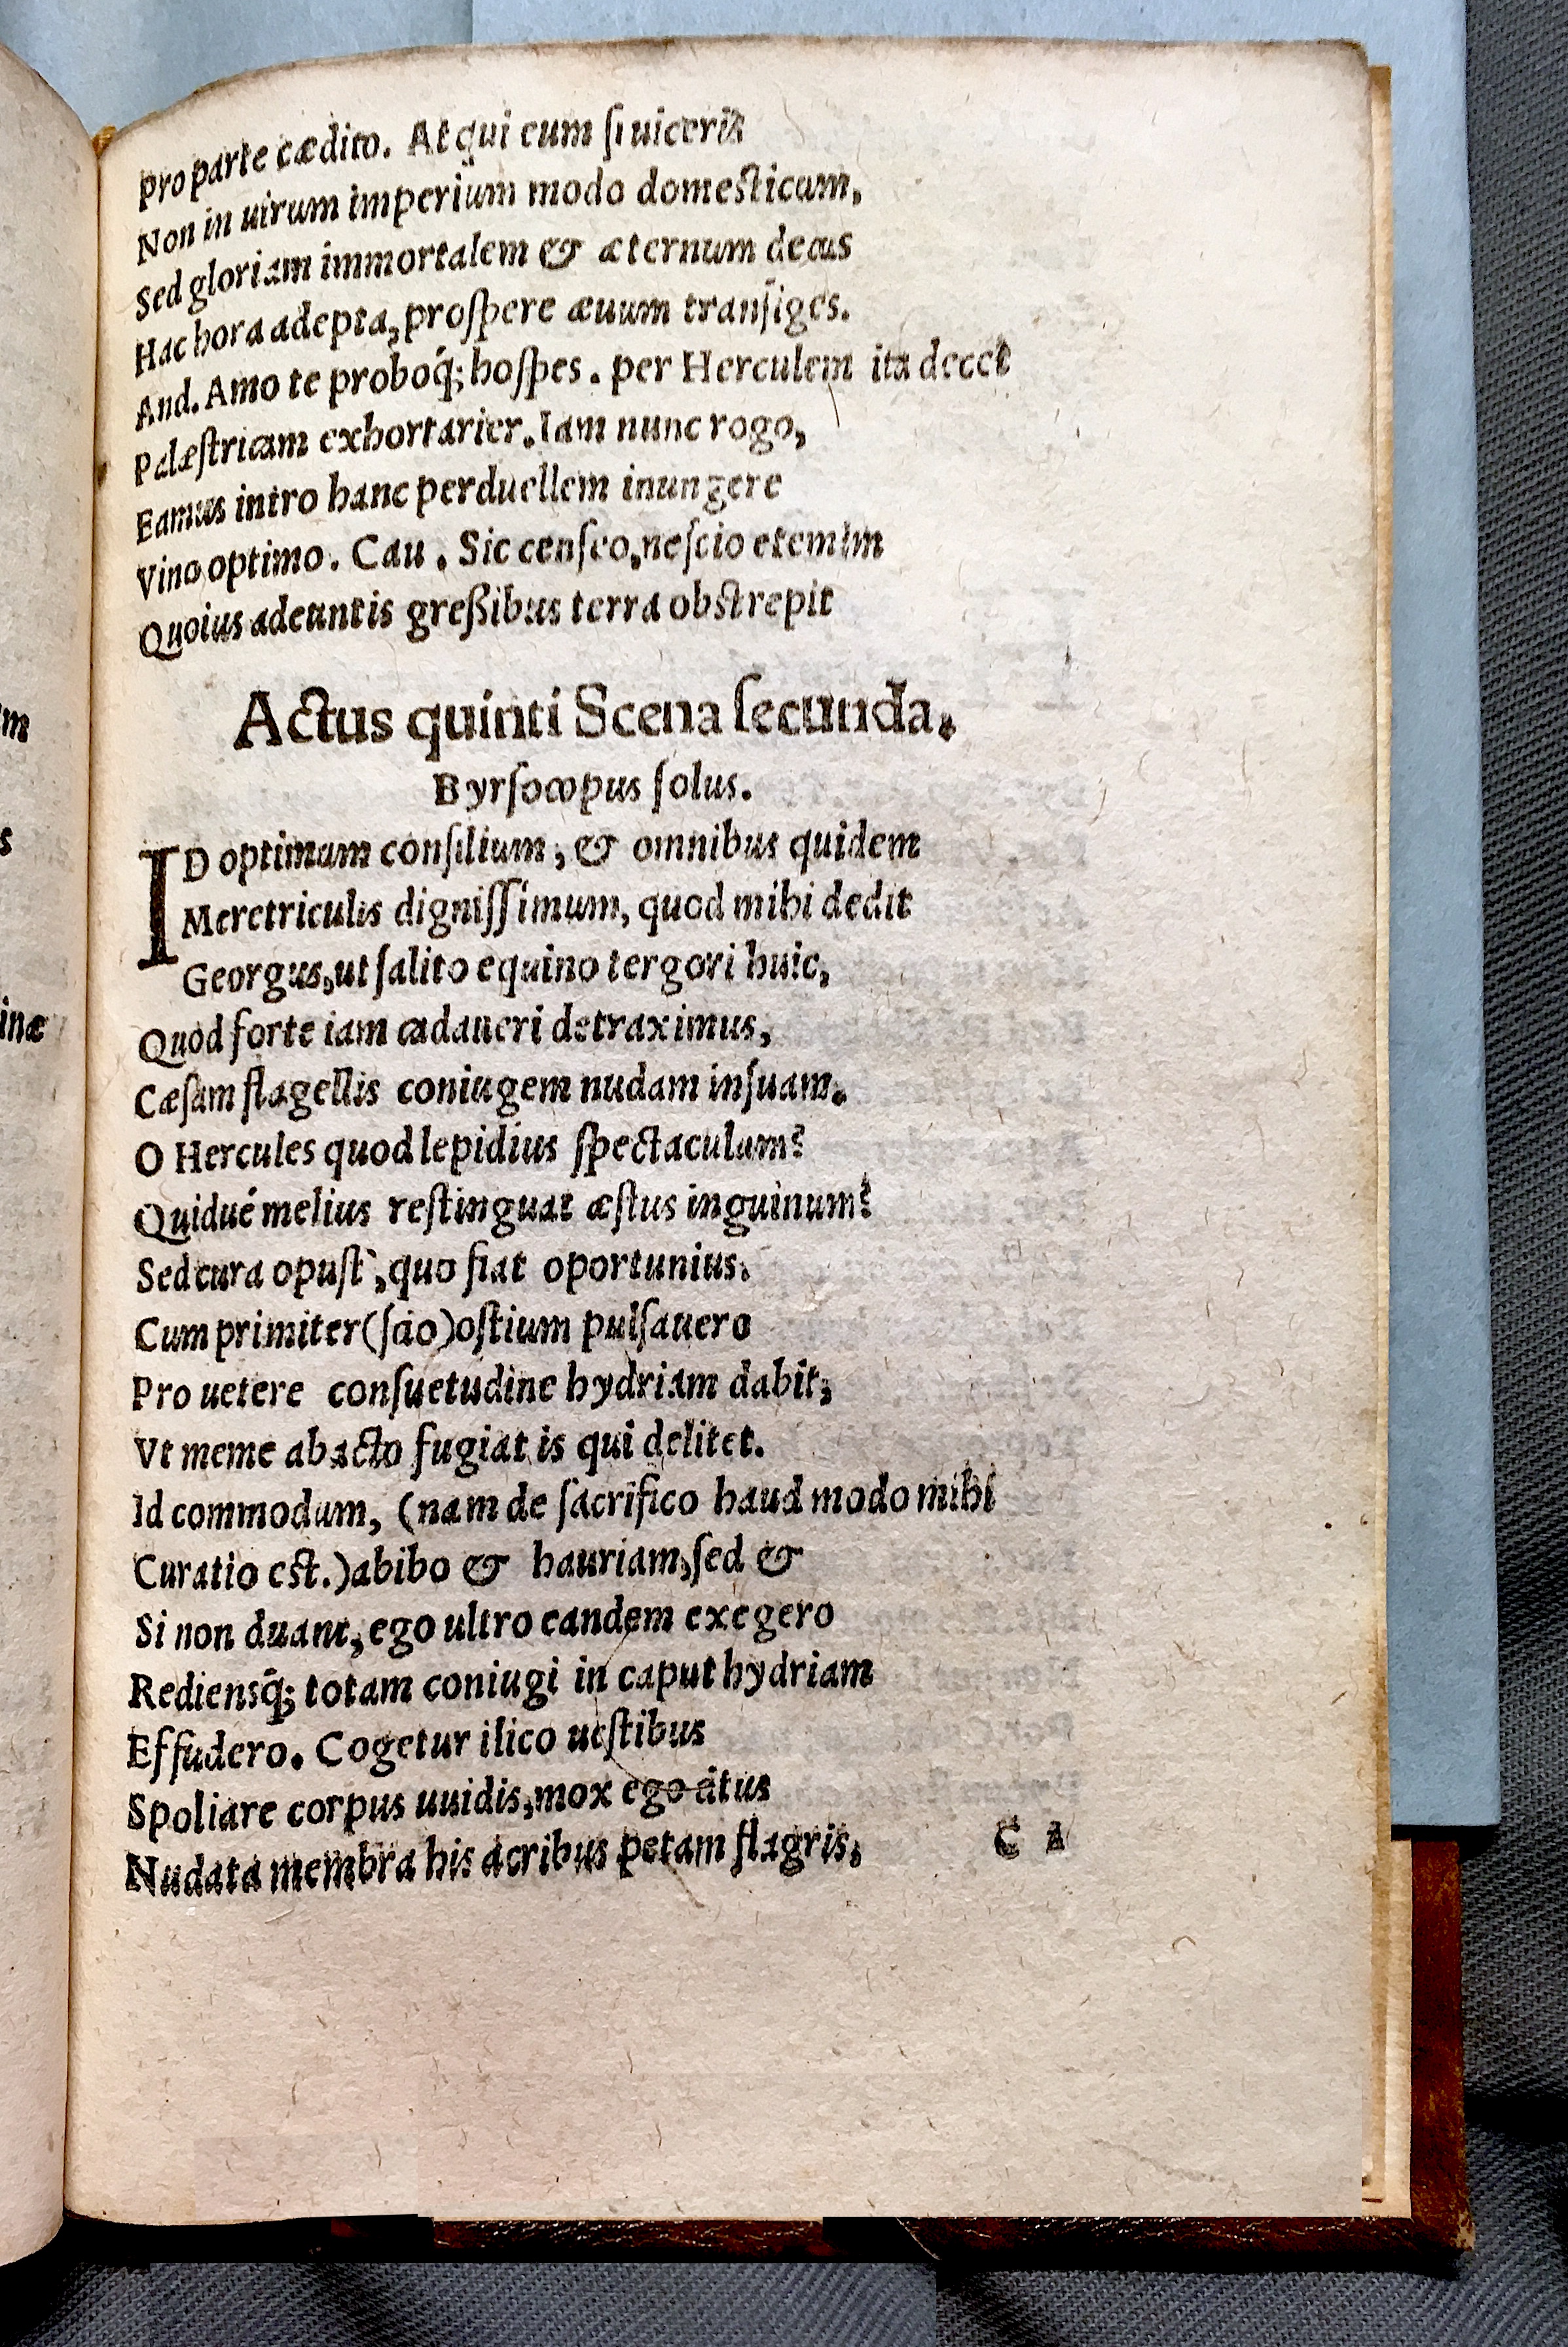 Pro parte cædito. Atqui eum ſi uiceris
Non in uirum imperium modo domesticum,
Sed gloriam immortalem & æternum decus
Hac hora adepta, proſpere æuum tranſiges.
And. Amo te proboq́; hoſpes. per Herculem ita decet
Palæſtricam exhortarier. Iam nunc rogo,
Eamus intro hanc perduellem inungere
Vino optimo. Cau. Sic cenſeo, neſcio etemim
Quoius adeuntis greßibus terra obstrepit
Actus quinti Scena ſecunda.
Byrſocopus ſolus.
ID optimum conſilium, & omnibus quidem
Meretriculis digniſſimum, quod mihi dedit
Georgus, ut ſalito equino tergori huic,
Quod forte iam cadaueri detraximus,
Cæſam flagellis coniugem nudam inſuam.
O Hercules quod lepidius ſpectaculum?
Quidué melius reſtinguat æſtus inguinum?
Sed cura opuſt`, quo fiat oportunius.
Cum primiter (ſcio) oſtium pulſauero
Pro uetere conſuetudine hydriam dabit;
Vt meme abacto fugiat is qui delitet.
Id commodum, (nam de ſacrifico haud modo mihi
Curatio est.) abibo & hauriam, ſed &
Si non duant, ego ultro eandem exegero
Rediensq́; totam coniugi in caput hydriam
Effudero. Cogetur ilico ueſtibus
Spoliare corpus uuidis, mox ego citus
Nudata membra his acribus petam flagris,
C A
m
s
inæ